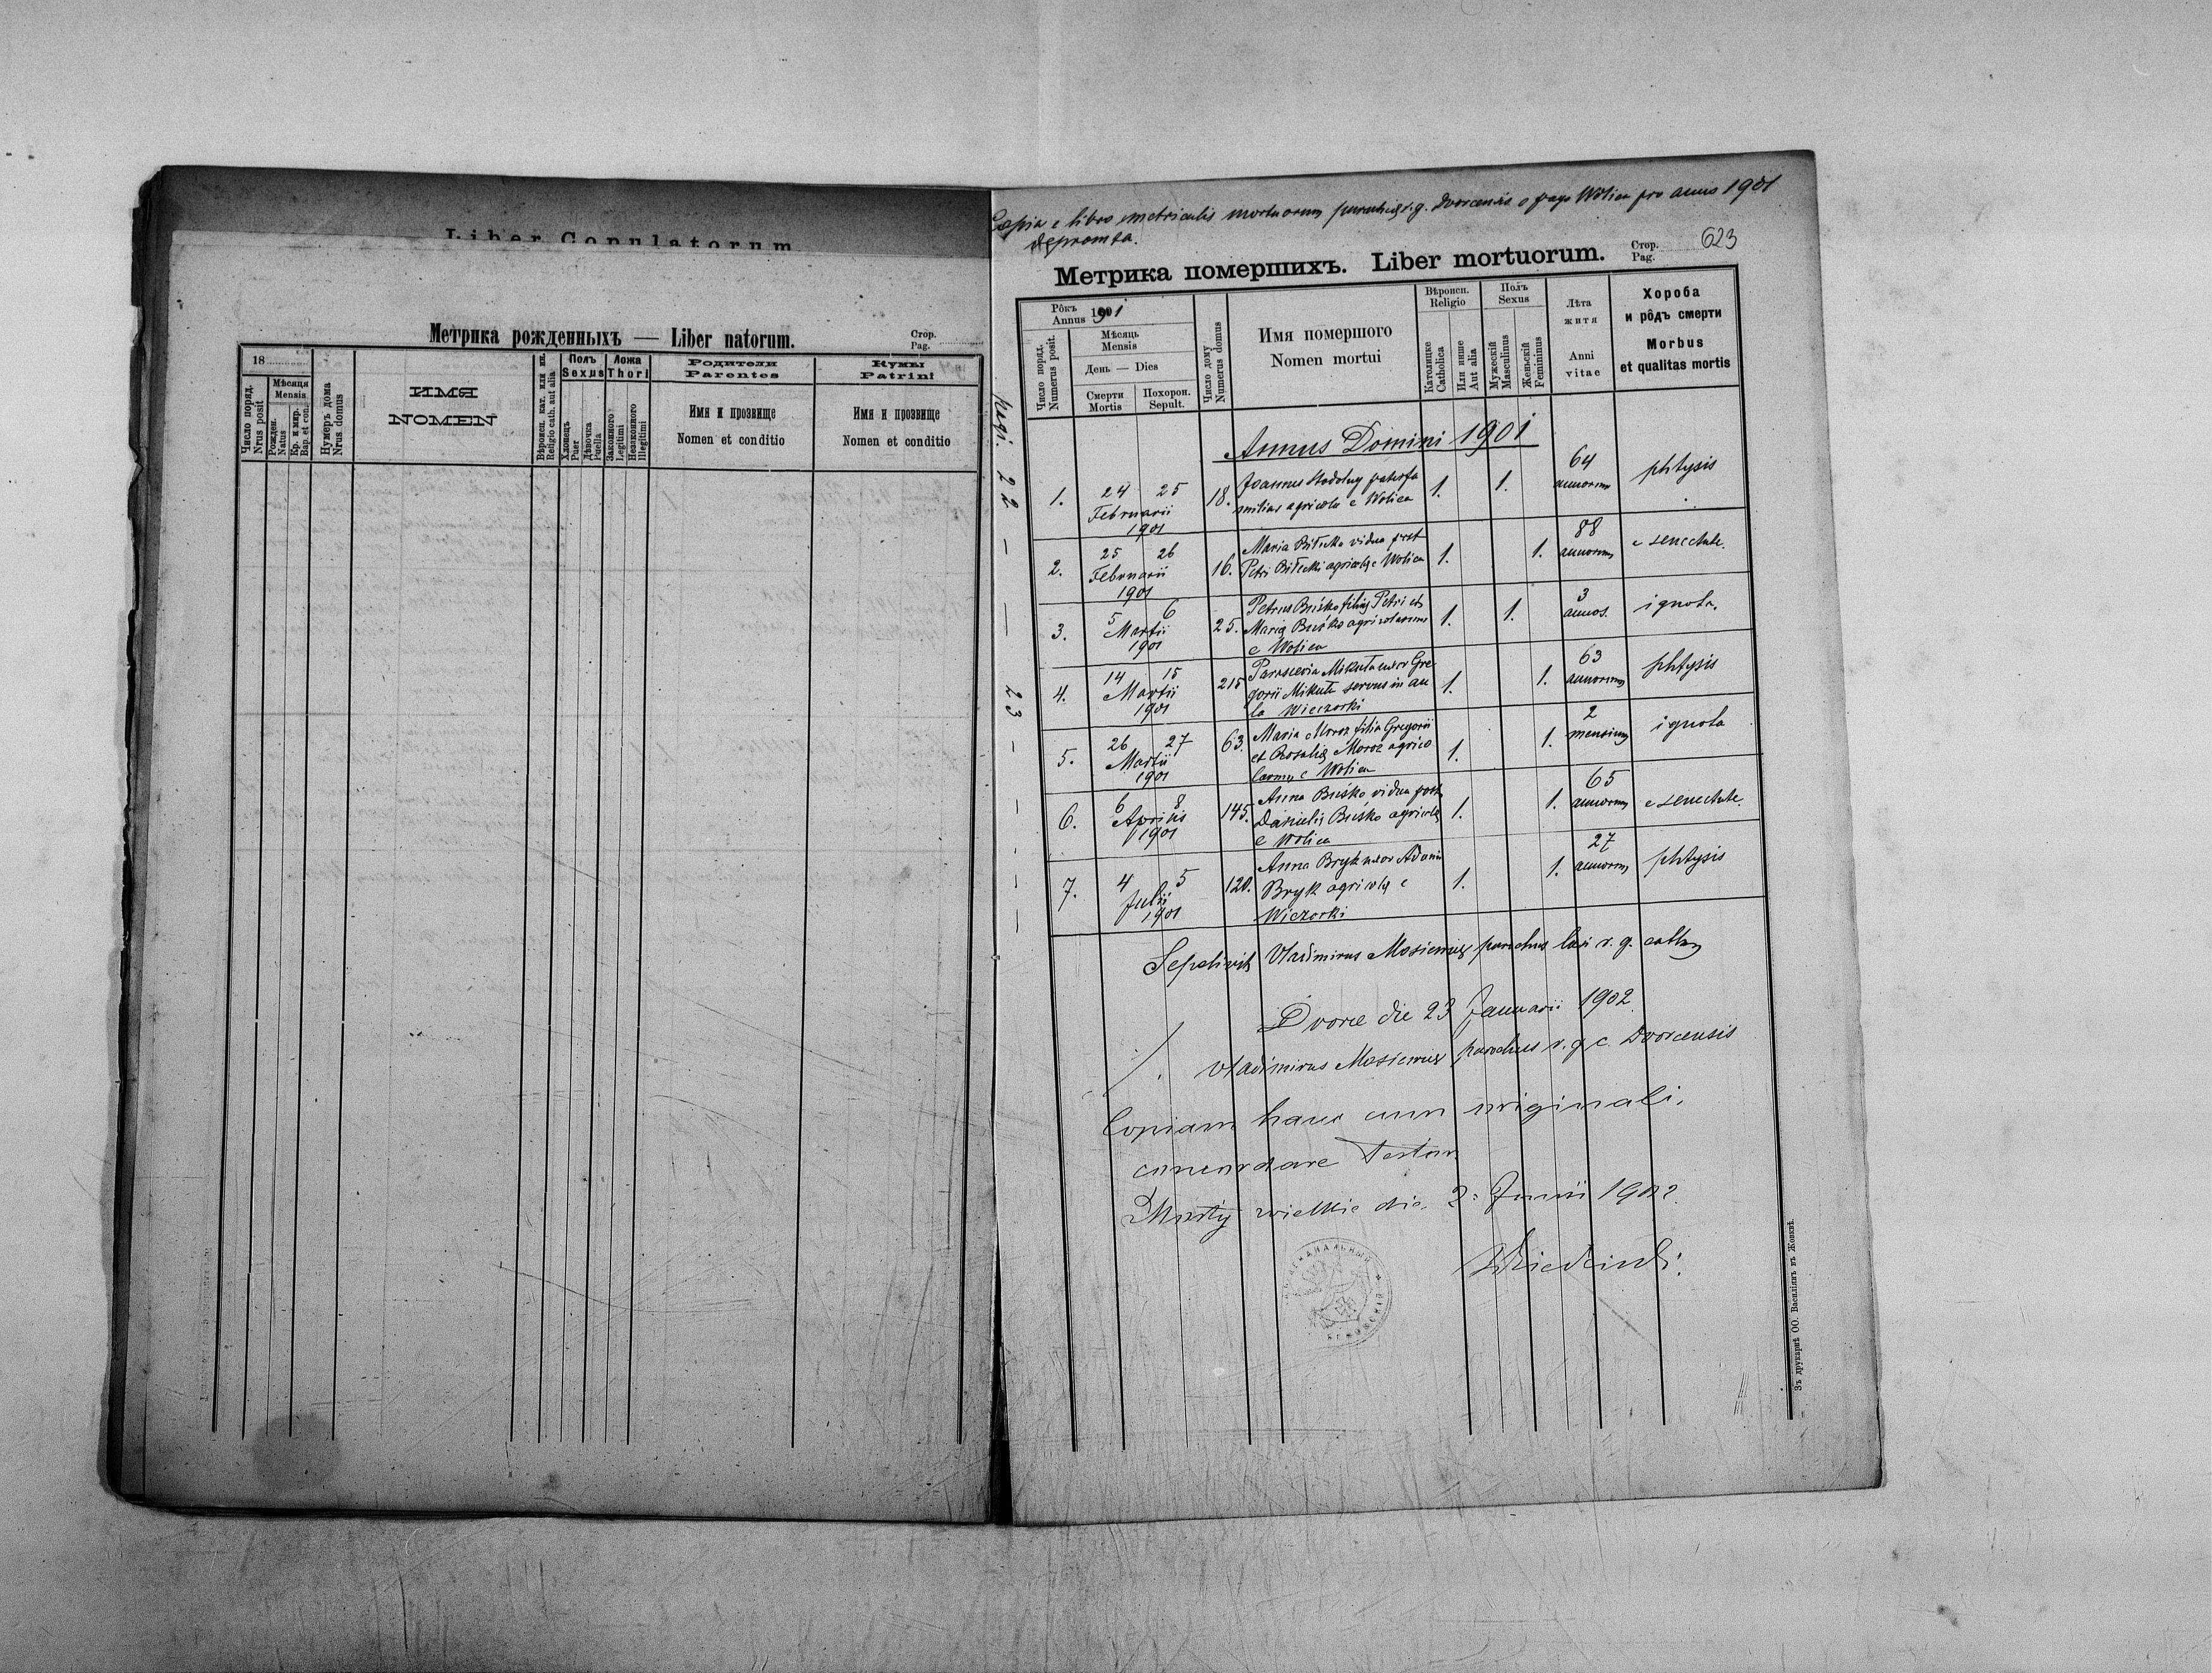 Liber Copulatorum
Метрика рожденныхъ — Liber natorum.
Стор.
Pag.
18
Число поряд.
Nrus posit
Мѣсяця
Mensis
Рожден.
Natus
Кр. и мѵр.
Bap. et con.
Нумеръ дома
Nrus domus
ИМЯ
NOMEN
Вѣроисп. кат. или ин.
Religio cath. aut alia
Полъ
Sexus
Хлопець
Puer
Дѣвочка
Puella
Ложа
Thori
Законного
Legitimi
Незаконного
Illegitimi
Родители
Parentes
Имя и прозвище
Nomen et conditio
Кумы
Patrini
Имя и прозвище
Nomen et conditio
Copia e libro metricalis mortuorum parochiæ r. g. Dvorcensis e pago Wolica pro anno 1901
depromta.
Метрика помершихъ. Liber mortuorum.
Стор.
Pag.
623
Рôкъ
Annus 1901
Число поряд.
Numerus posit.
Мѣсяць
Mensis
День — Dies
Смерти
Mortis
Похорон.
Sepult.
Число дому
Numerus domus
Имя помершого
Nomen mortui
Вѣроисп.
Religio
Католицке
Catholica
Или инше
Aut alia
Полъ
Sexus
Мужескій
Masculinus
Женьскій
Feminius
Лѣта
житя
Anni
vitae
Хороба
и рôдъ смерти
Morbus
et qualitas mortis
pagi. 22 — — 23 —
Annus Domini 1901
1. 24 25 Februarii 1901 18. Joannes Stodolny paterfa
milias agricola e Wolica 1. 1. 64 annorum phtysis
2. 25 26 Februarii 1901 16. Maria Biłecka vidua post
Petri Biłecki agricolæ e Wolica 1. 1. 88 annorum e senectute.
3. 5 6 Martii 1901 25. Petrus Buśko filius Petri et
Mariæ Buśko agricolarum
e Wolica 1. 1. 3 annos. ignota.
4. 14 15 Martii 1901 215 Parascevia Mikuła uxor Gre
gorii Mikuła servus in au
la Wieczorki 1. 1. 63 annorum phtysis
5. 26 27 Martii 1901 63. Maria Moroz filia Gregorii
et Rosaliæ Moroz agrico
larum e Wolica 1. 1. 2 mensium ignota
6. 6 8 Aprilis 1901 145. Anna Buśko vidua post
Danielis Buśko agricolæ
e Wolica 1. 1. 65 annorum e senectute.
7. 4 5 Julii 1901 120. Anna Bryk uxor Adami
Bryk agricolæ e
Wiczorki 1. 1. 27 annorum phtysis
Sepelivit Vladimirus Mosiewicz parochus loci r. g. cath
Dvorce die 23 Januarii 1902.
Vladimirus Mosiewicz parochus r. g c. Dvorcensis
Copiam hanc cum originali
concordare testor.
Mosty wielkie die 2: Junii 1902.
Зъ друкарнѣ ОО. Василіянъ въ Жовквѣ.